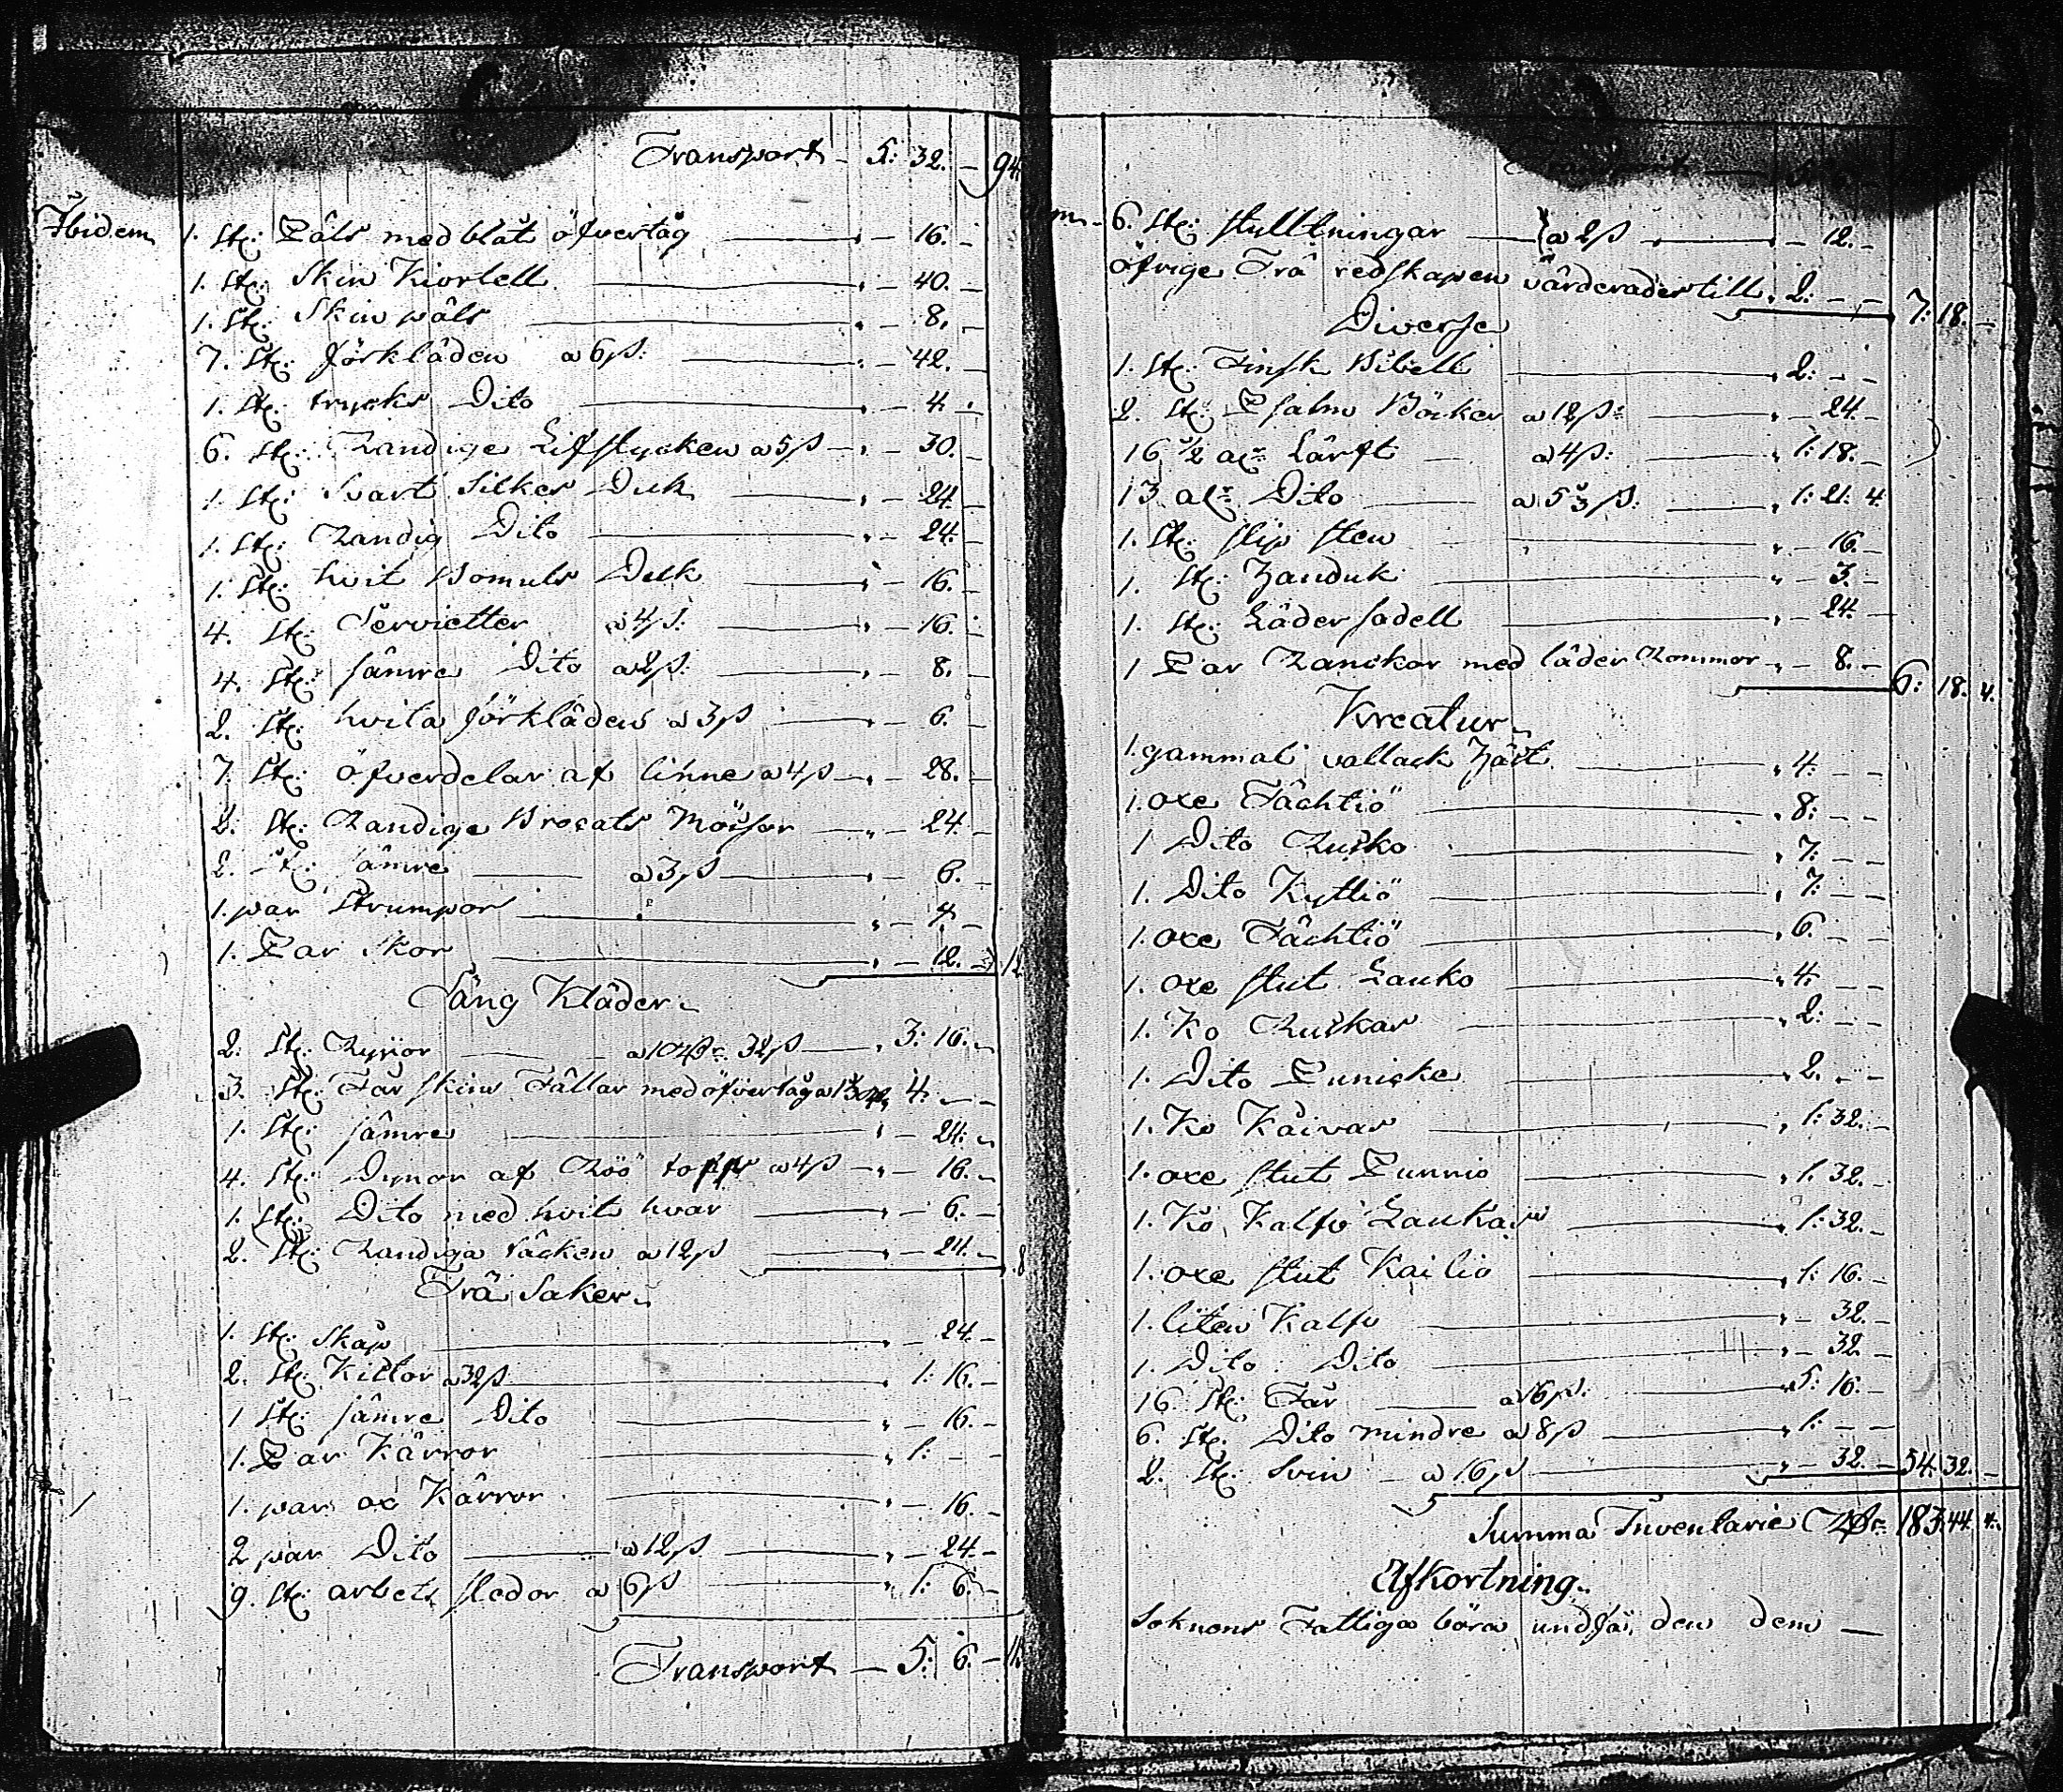 Transport - 5: 32. - 94
Ibidem 1. St: Päls med blåt öfvertåg - 16. -
1. St: Skin Kiortell - 40. -
1. St: Skin päls - 8. -
7. St: förkläden a 6 ß: - 42. -
1. St: trycks Dito - 4. -
6. St: Randige Lifstycken a 5 ß - 30. -
1. St: Svart Silkes Duk - 24. -
1. St: Randig Dito - 24. -
1. St: hvit Bomuls Duk - 16. -
4. St: Servietter a 4 ß: - 16. -
4. St: sämre Dito a 2 ß: - 8. -
2. St: hvita förkläden a 3 ß - 6. -
7. St: öfverdelar af linne a 4 ß - 28. -
2. St: Randige Brocats Mössor - 24. -
2. St: sämre a 3 ß - 6. -
1. par Strumpor - 4. -
1. Par Skor - 12. - 12
Säng Kläder.
2. St: Ryijor 32 ß 3: 16. -
3. St: Får skins Fällar med öfvertåg 4. - -
1. St: sämre - 24. -
4. St: Dynor af a 4 ß - 16. -
1. St: Dito med hvit hvar - 6. -
2. St: Randiga täcken a 12 ß - 24. - 8
Trä Saker.
1. St: Skåp - 24. -
2. St: Kistor a 32 ß 1: 16. -
1 St: sämre Dito - 16. -
1. Par Kärror 1: - -
1. par ox Kärror - 16. -
2 par Dito a 12 ß - 24. -
9. St: arbets slädor a 6 ß 1: 6. -
Transport - 5: 6. - 11
6. St: a 2 ß - 12. -
öfrige Trä redskapen värderades till 2: - - 7: 18. -
Diverse
1. St: Finsk Bibell 2: - -
2. St: Psalm Böcker a 12 ß: - 24. -
16 1/2 alr Lärft a 4 ß: 1: 18. -
13 alr Dito a 5 1/3 ß: 1: 21. 4.
1. St: slip sten - 16. -
1. St: Handuk - 3. -
1. St: Läder sadell - 24. -
1 Par Ranckor med läder Rommor - 8. - 6: 18. 4.
Kreatur.
1. gammal vallack Häst 4. - -
1. oxe Tächtiö 8: - -
1 Dito Rusko 7: - -
1. Dito Kyttiö 7: - -
1. oxe Tächtiö 6. - -
1. oxe stut Lauko 4. - -
1. Ko Ruskar 2: - -
1. Dito Punicke 2. - -
1. Ko Käivas 1: 32. -
1. oxe stut Punnio 1: 32. -
1. Ko Kalfv Laukas 1: 32. -
1. oxe stut Kailio 1: 16. -
1. liten Kalfv - 32. -
1. Dito Dito - 32. -
16. St: Får a 16 ß: 5: 16. -
6. St: Dito mindre a 8 ß 1: - -
2. St: Svin a 16 ß - 32. - 54: 32. -
Summa Inventarie 183: 44. 4.
Afkortning.
Soknens Fattiga böra undfå, den dem —